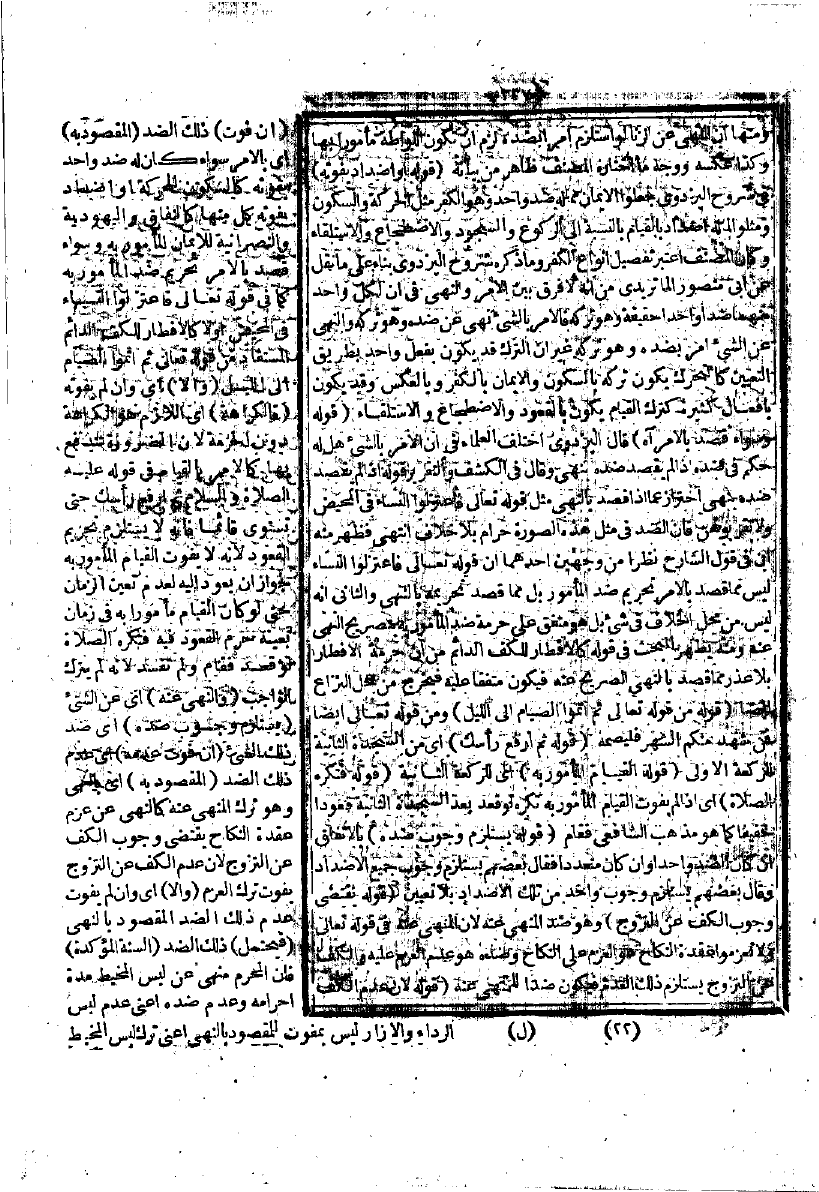 ومنها ان النهى عن لو استلزم امر الضده لزم ان تكون اللواطة مأمورا بها
وكذا عكسه ووجه ما اختاره المصنف ظاهر من بيانه (قوله او اضداد يفوته)
فى شروح البزدوى جعلوا الايمان مما له ضد واحد وهو الكفر مثل الحركة والسكون
ومثلوا لما له اضداد بالقيام بالنسبة الى الركوع والسجود والاضطجاع والاستلقاء
وكأن المصنف اعتبر تفصيل انواع الكفر وما ذكره شروح البزدوى بناء على ما نقل
عن ابى منصور الماتريدى من انه لا فرق بين الامر والنهى فى ان لكل واحد
منهما ضدا واحدا حقيقة وهو تركه فالامر بالشئ نهى عن ضده وهو تركه والنهى
عن الشئ امر بضده وهو تركه غير ان الترك قد يكون بفعل واحد بطريق
التعيين كالتحرك يكون تركه بالسكون والايمان بالكفر وبالعكس وقد يكون
بافعال كثيرة كترك القيام يكون بالقعود والاضطجاع والاستلقاء (قوله
وسواء قصد بالامر آه) قال البزدوى اختلف العلماء فى ان الامر بالشئ هل له
حكم فى ضده اذا لم يقصد ضده بنهى وقال فى الكشف والتقرير قوله اذا لم يقصد
ضده بنهى احتراز عما اذا قصد بالنهى مثل قوله تعالى فاعتزلوا النساء فى المحيض
ولا تقربوهن فان الضد فى مثل هذه الصورة حرام بلا خلاف انتهى فظهر منه
ان فى قول الشارح نظرا من وجهين احدهما ان قوله تعالى فاعتزلوا النساء
ليس مما قصد بالامر تحريم ضد المأمور بل مما قصد تحريمه بالنهى والثانى انه
ليس من محل الخلاف فى شئ بل هو متفق على حرمة ضد المأمور به بصريح النهى
عنه ومنه يظهر البحث فى قوله كالافطار للكف الدائم من ان حرمة الافطار
بلا عذر مما قصد بالنهى الصريح عنه فيكون متفقا عليه فيخرج من محل النزاع
ايضا (قوله من قوله تعالى ثم اتموا الصيام الى الليل) ومن قوله تعالى ايضا
فمن شهد منكم الشهر فليصمه (قوله ثم ارفع رأسك) اى من السجدة الثانية
للركعة الاولى (قوله القيام المأمور به) اى للركعة الثانية (قوله فتكره
الصلاة) اى اذا لم يفوت القيام المأمور به تكره لو قعد بعد السجدة الثانية قعودا
خفيفا كما هو مذهب الشافعى فقام (قوله يستلزم وجوب ضده) بالاتفاق
ان كان الضد واحدا وان كان متعددا فقال بعضهم يستلزم وجوب جميع الاضداد
وقال بعضهم يستلزم وجوب واحد من تلك الاضداد بلا تعيين (قوله يقتضى
وجوب الكف عن التزوج) وهو ضد المنهى عنه لان المنهى عنه فى قوله تعالى
ولا تعزموا عقدة النكاح هو العزم على النكاح وضده هو عدم العزم عليه والكف
عن التزوج يستلزم ذلك العدم فيكون ضدا للمنهى عنه (قوله لان عدم الكف
(ان فوت) ذلك الضد (المقصود به)
اى بالامر سواء كان له ضد واحد
يفوته كالسكون للحركة او اضداد
يفوته كل منها كالنفاق واليهودية
والنصرانية للايمان المأمور به وسواء
قصد بالامر تحريم ضد المأمور به
كما فى قوله تعالى فاعتزلوا النساء
فى المحيض اولا كالافطار للكف الدائم
المستفاد من قوله تعالى ثم اتموا الصيام
الى الليل (والا) اى وان لم يفوته
(فالكراهة) اى اللازم هو الكراهة
دون الحرمة لان الضرورة تندفع
بها كالامر بالقيام فى قوله عليه
الصلاة والسلام ثم ارفع رأسك حتى
تستوى قائما فانه لا يستلزم تحريم
القعود لانه لا يفوت القيام المأمور به
لجواز ان يعود اليه لعدم تعين الزمان
حتى لو كان القيام مأمورا به فى زمان
بعينه حرم القعود فيه فتكره الصلاة
لو قعد فقام ولم تفسد لانه لم يترك
الواجب (والنهى عنه) اى عن الشئ
(يستلزم وجوب ضده) اى ضد
ذلك الشئ (ان فوت عدمه) اى عدم
ذلك الضد (المقصود به) اى بالنهى
وهو ترك المنهى عنه كالنهى عن عزم
عقدة النكاح يقتضى وجوب الكف
عن التزوج لان عدم الكف عن التزوج
يفوت ترك العزم (والا) اى وان لم يفوت
عدم ذلك الضد المقصود بالنهى
(فيحتمل) ذلك الضد (السنة المؤكدة)
فان المحرم منهى عن لبس المخيط مدة
احرامه وعدم ضده اعنى عدم لبس
الرداء والازار ليس بمفوت للمقصود بالنهى اعنى ترك لبس المخيط
(٢٢) (ل)